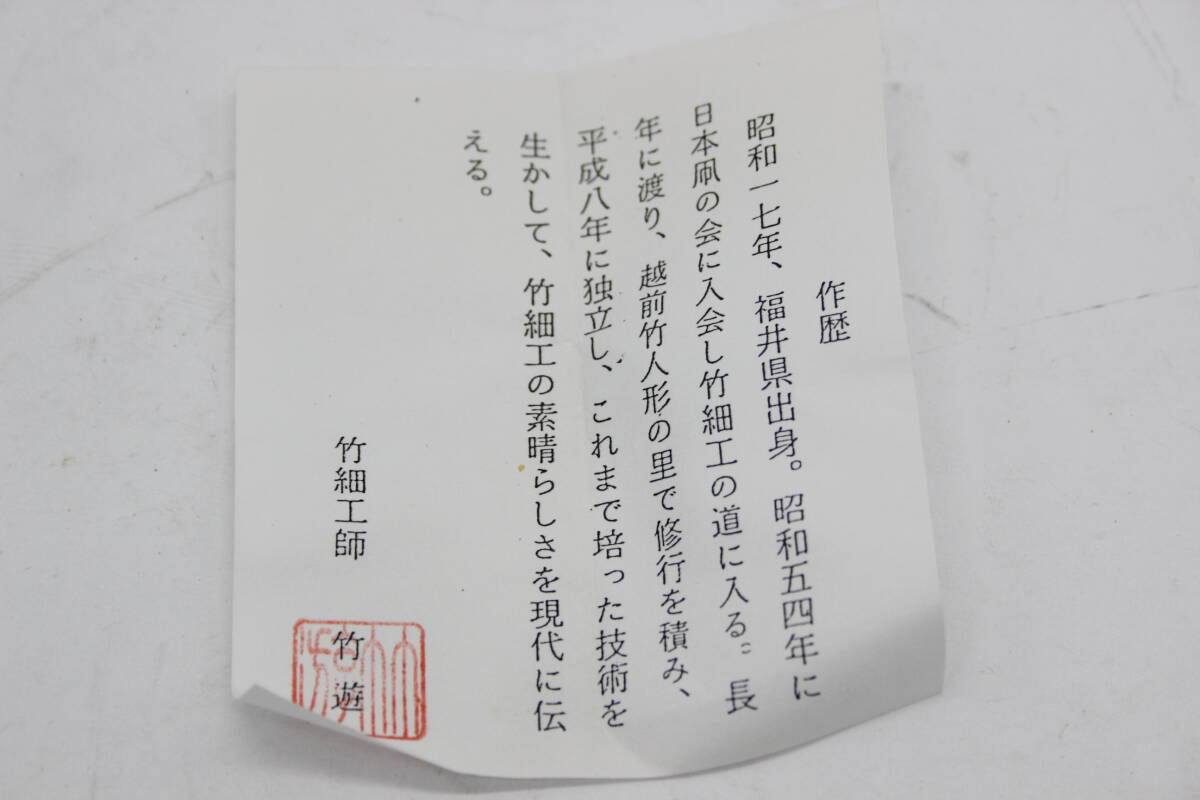 作歴
昭和一七年、福井県出身。昭和五四年に
日本凧の会に入会し竹細工の道に入る。長
年に渡り、越前竹人形の里で修行を積み、
平成八年に独立し、これまで培った技術を
生かして、竹細工の素晴らしさを現代に伝
える。
竹細工師 竹遊